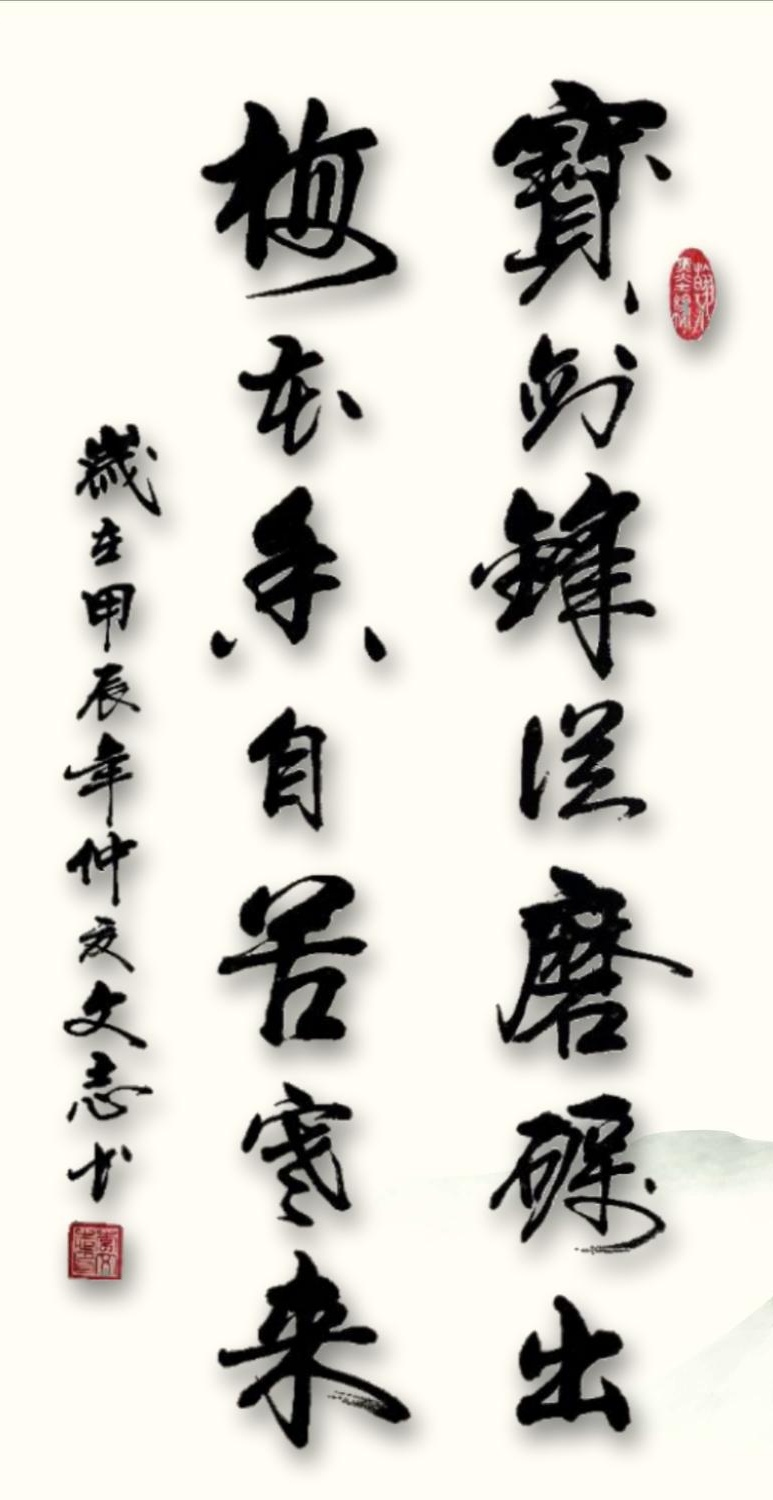 寶劍鋒從磨礪出
梅花香自苦寒来
歲在甲辰年仲夏文志书